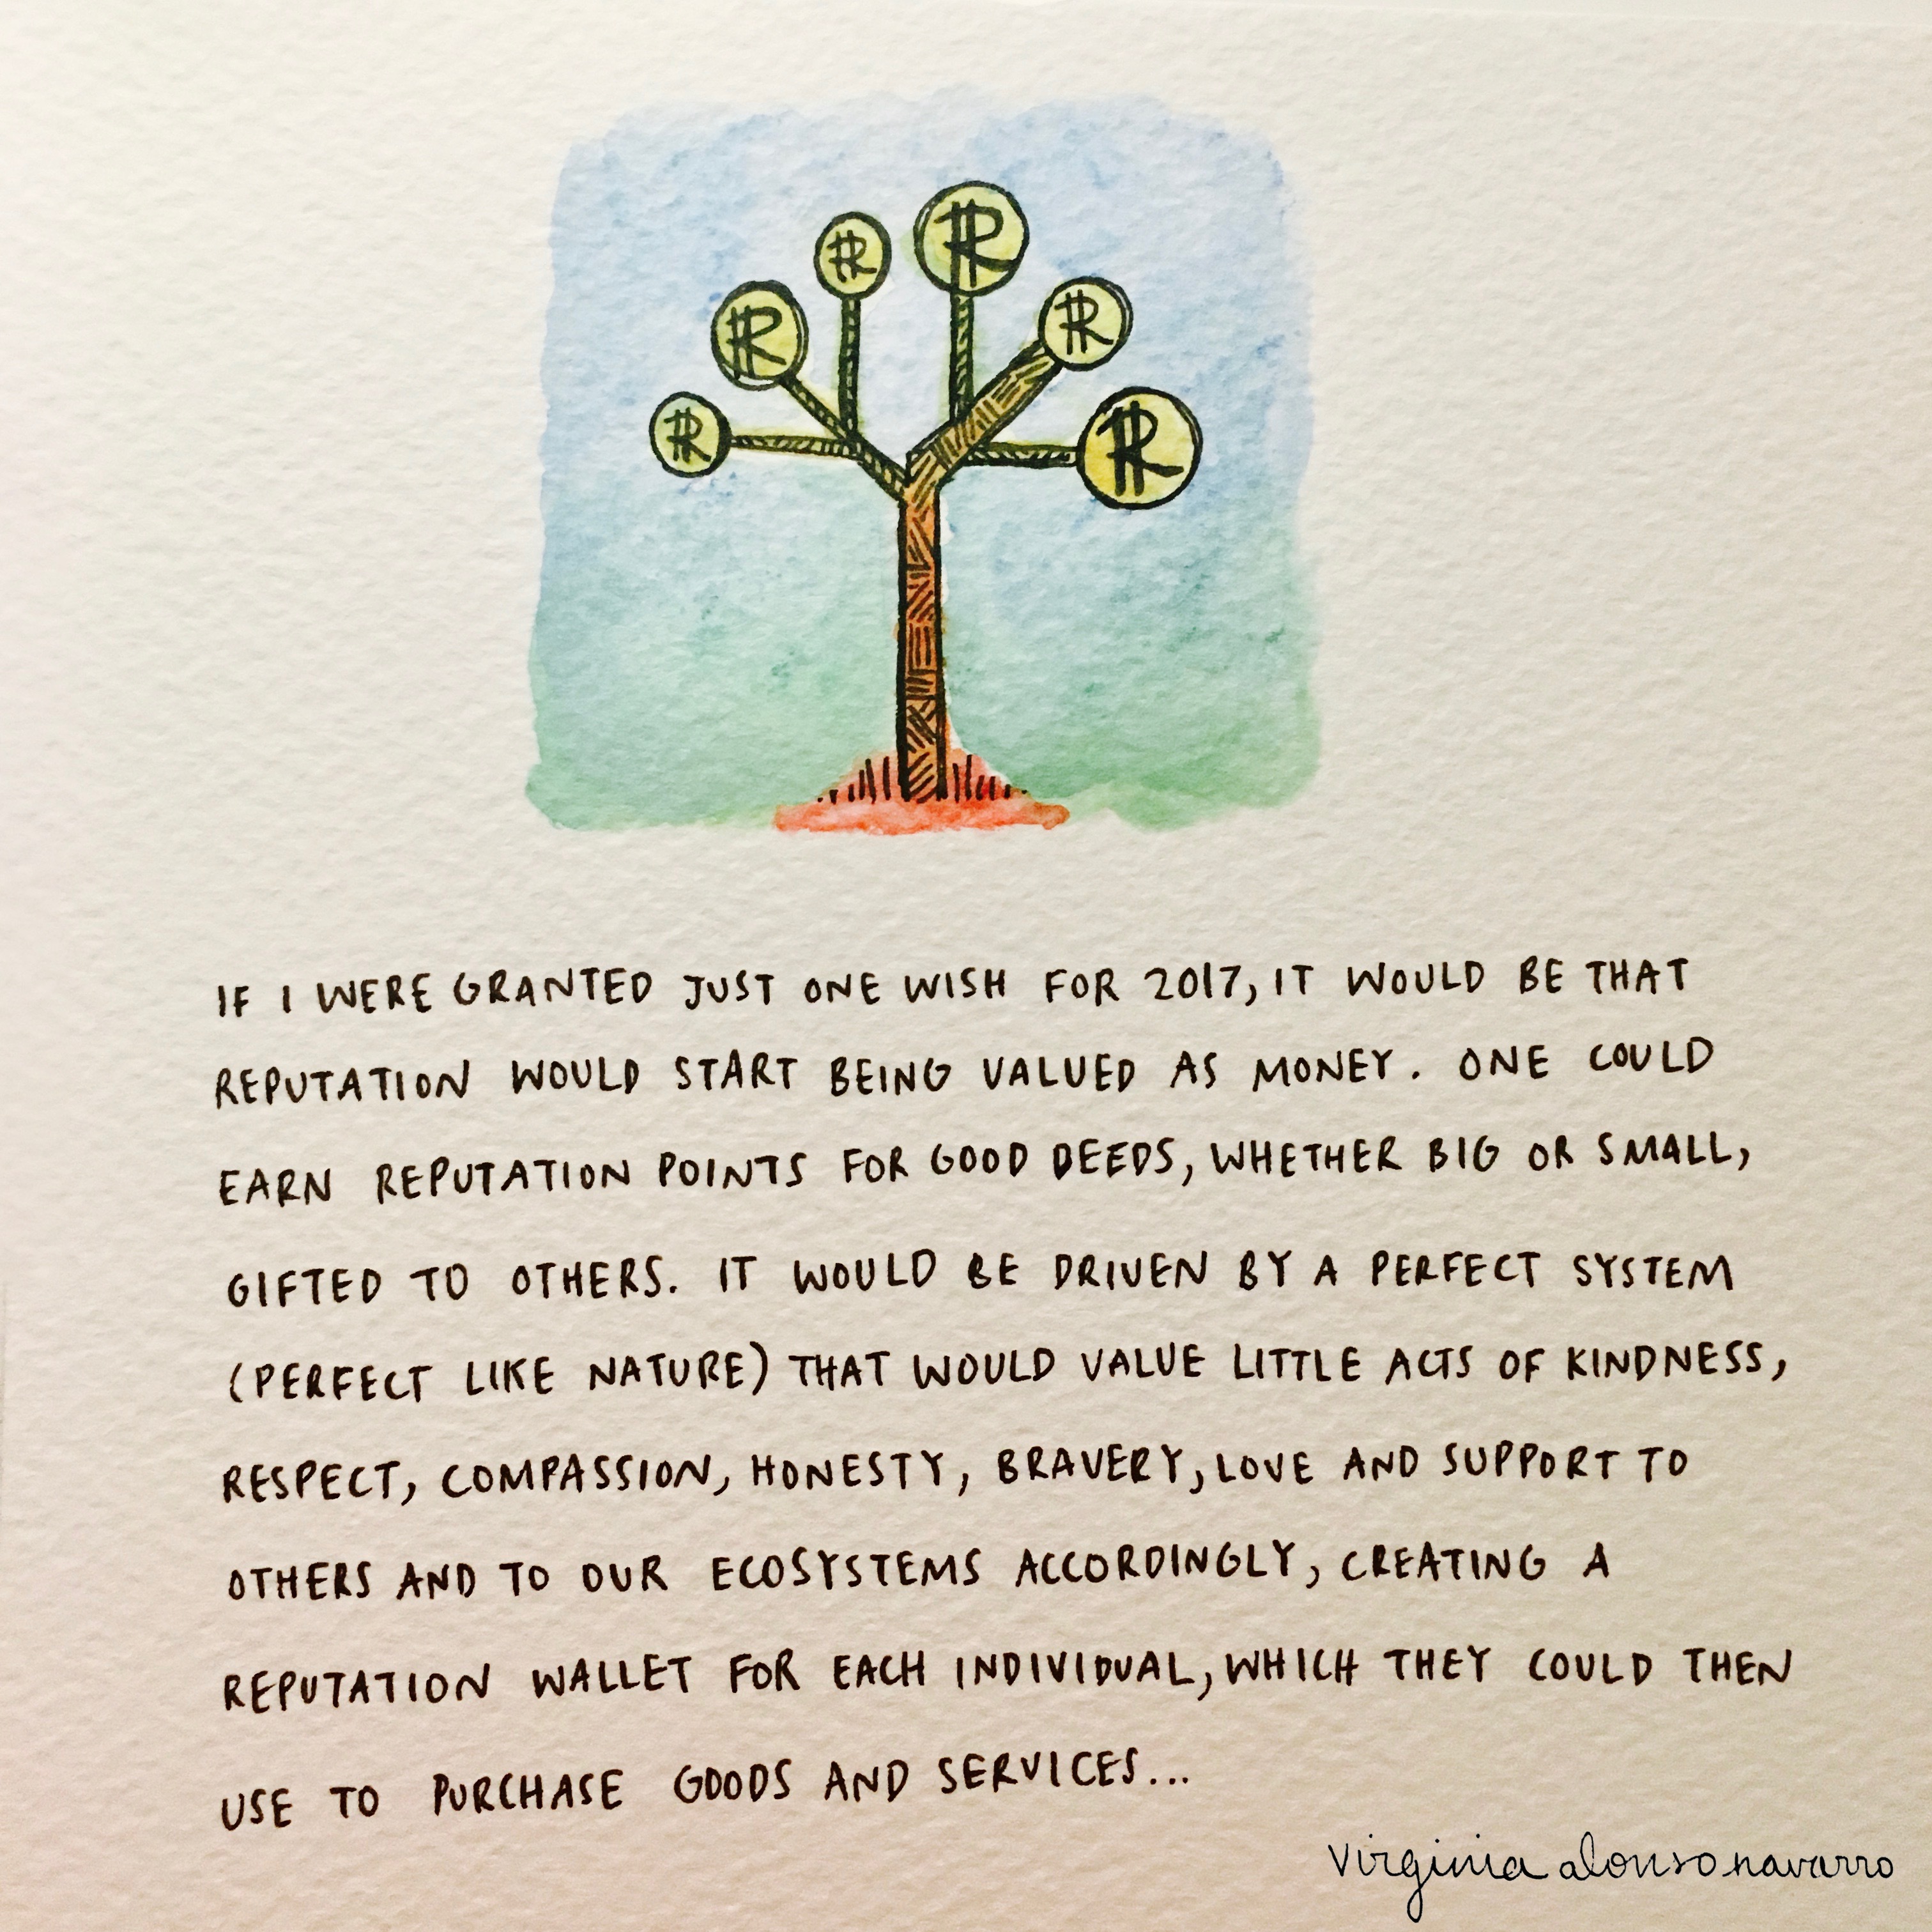 R
R
R
R
R
R
IF I WERE GRANTED JUST ONE WISH FOR 2017, IT WOULD BE THAT
REPUTATION WOULD START BEING VALUED AS MONEY. ONE COULD
EARN REPUTATION POINTS FOR GOOD DEEDS, WHETHER BIG OR SMALL,
GIFTED TO OTHERS. IT WOULD BE DRIVEN BY A PERFECT SYSTEM
(PERFECT LIKE NATURE) THAT WOULD VALUE LITTLE ACTS OF KINDNESS,
RESPECT, COMPASSION, HONESTY, BRAVERY, LOVE AND SUPPORT TO
OTHERS AND TO OUR ECOSYSTEMS ACCORDINGLY, CREATING A
REPUTATION WALLET FOR EACH INDIVIDUAL, WHICH THEY COULD THEN
USE TO PURCHASE GOODS AND SERVICES...
Virginia alonso navarro